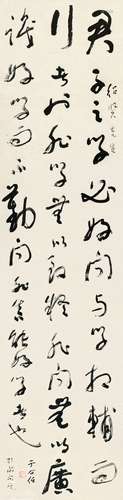 君子之學必好問與學相輔而
行者也非學無以致疑非問無以廣
識好學而不勤問非真能好學者也
先生
于右任